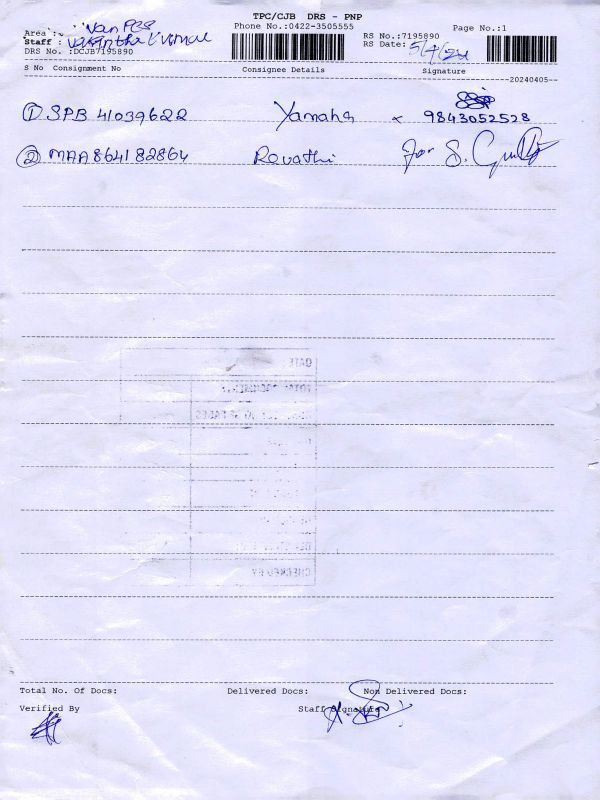 TPC/CJB DRS - PNP
Phone No.:0422-3505555
Page No.:1
Area :
Staff :
DRS No. :DCJB7195890
RS No.:7195890
RS Date: 5/4/24
S No Consignment No Consignee Details Signature
20240405
① SPB 41039622 Yamaha x 9843052528
② MAA864182864 Revathi for S.
DATE
CHECKED BY
Total No. Of Docs: Delivered Docs: Non Delivered Docs:
Verified By Staff Signature